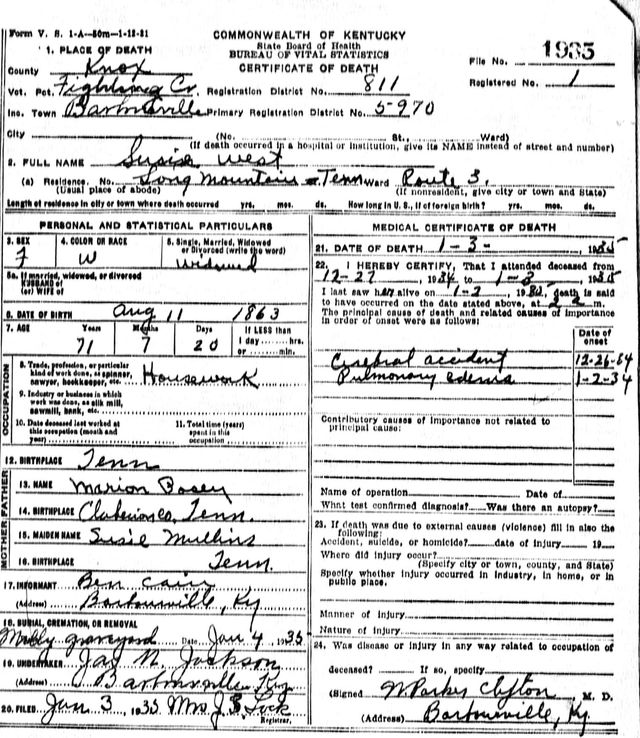 Form V. S. 1-A—50m—1-12-31
COMMONWEALTH OF KENTUCKY
State Board of Health
BUREAU OF VITAL STATISTICS
CERTIFICATE OF DEATH
1935
File No.
Registered No. 1
1. PLACE OF DEATH
County Knox
Vot. Pct. Fighting Cr. Registration District No. 811
Inc. Town Barbourville Primary Registration District No. 5-970
City (No. St., Ward)
(If death occurred in a hospital or institution, give its NAME instead of street and number)
2. FULL NAME Susie West
(a) Residence. No. Long Mountain Tenn Ward Route 3,
(Usual place of abode) (If nonresident, give city or town and State)
Length of residence in city or town where death occurred yrs. mos. ds. How long in U. S., if of foreign birth? yrs. mos. ds.
PERSONAL AND STATISTICAL PARTICULARS
3. SEX 4. COLOR OR RACE 5. Single, Married, Widowed
or Divorced (write the word)
F W Widowed
5a. If married, widowed, or divorced
HUSBAND of
(or) WIFE of
6. DATE OF BIRTH Aug 11 1863
7. AGE Years Months Days If LESS than
71 7 20 1 day hrs.
or min.
OCCUPATION
8. Trade, profession, or particular
kind of work done, as spinner,
sawyer, bookkeeper, etc. Housework
9. Industry or business in which
work was done, as silk mill,
sawmill, bank, etc.
10. Date deceased last worked at
this occupation (month and
year)
11. Total time (years)
spent in this
occupation
12. BIRTHPLACE Tenn
FATHER
13. NAME Marion Posey
14. BIRTHPLACE Tenn.
MOTHER
15. MAIDEN NAME Susie Mullins
16. BIRTHPLACE Tenn.
17. INFORMANT Ben Cain
(Address) Barbourville, Ky
18. BURIAL, CREMATION, OR REMOVAL
graveyard Date Jan 4 1935
19. UNDERTAKER Jas N. Jackson
(Address) Barbourville Ky
20. FILED Jan 3, 1935 Mrs J. S. Lock
Registrar.
MEDICAL CERTIFICATE OF DEATH
21. DATE OF DEATH 1-3-, 1935
22. I HEREBY CERTIFY, That I attended deceased from
12-27, 1934 to 1-3-, 1935
I last saw her alive on 1-2, death is said
to have occurred on the date stated above, at m.
The principal cause of death and related causes of importance
in order of onset were as follows:
Date of
onset
Cerebral accident 12-26-34
Pulmonary edema 1-2-34
Contributory causes of importance not related to
principal cause:
Name of operation Date of
What test confirmed diagnosis? Was there an autopsy?
23. If death was due to external causes (violence) fill in also the
following:
Accident, suicide, or homicide? date of injury 19
Where did injury occur?
(Specify city or town, county, and State)
Specify whether injury occurred in industry, in home, or in
public place.
Manner of injury
Nature of injury
24. Was disease or injury in any way related to occupation of
deceased? If so, specify
(Signed Parker Clifton, M. D.
(Address) Barbourville, Ky.